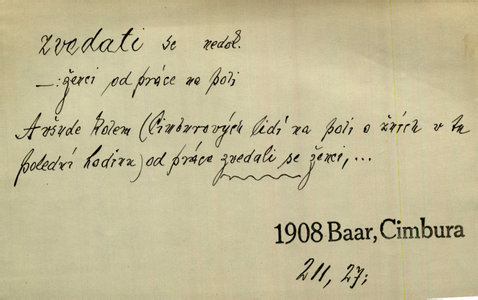 zvedati se nedok.
—: ženci od práce na poli
A všude kolem (Cimburových lidí na poli o žních v tu
polední hodinu) od práce zvedali se ženci,...
1908 Baar, Cimbura
211, 27;